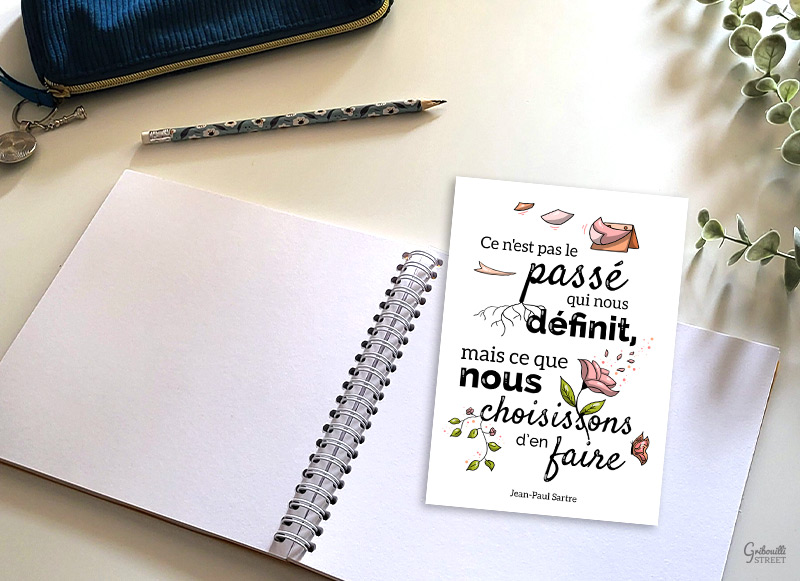 Ce n'est pas le
passé
qui nous
définit,
mais ce que
nous
choisissons
d'en
faire
Jean-Paul Sartre
Gribouilli
STREET